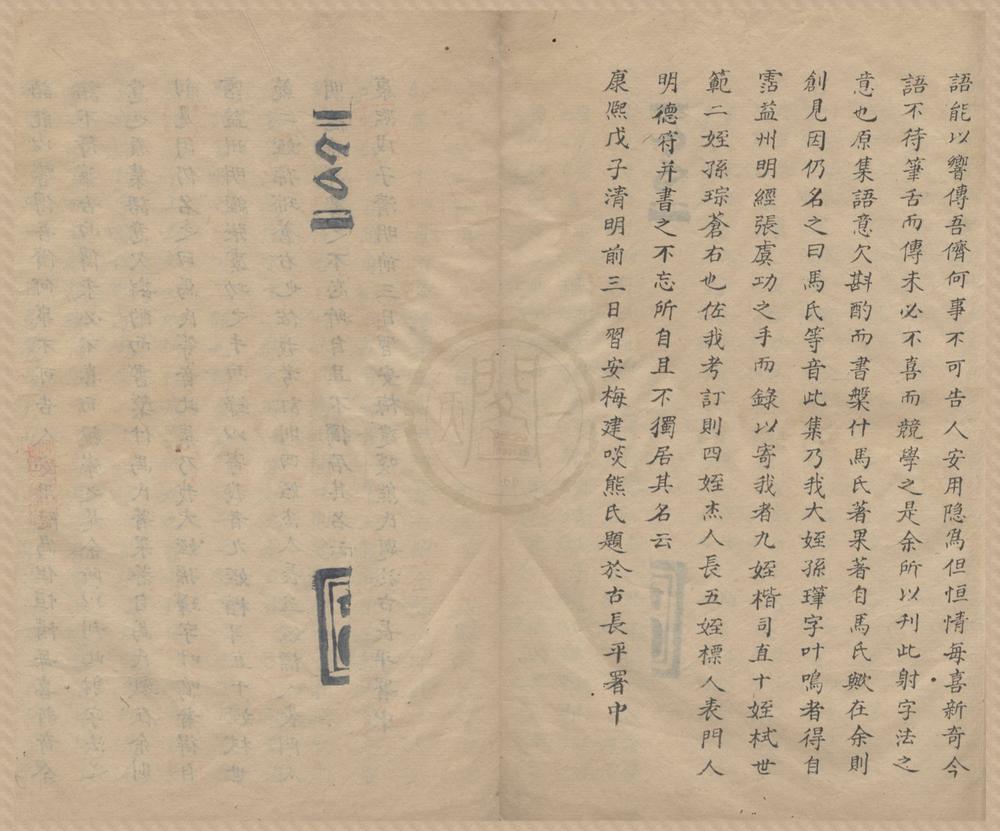 語能以響傳吾儕何事不可告人安用隐為但恒情每喜新奇今
語不待筆舌而傳未必不喜而競學之是余所以刊此射字法之
意也原集語意欠斟酌而書槩什馬氏著果著自馬氏歟在余則
創見因仍名之曰馬氏等音此集乃我大姪孫瑾字叶鳴者得自
霑益州明經張虞功之手而錄以寄我者九姪楷司直十姪栻世
範二姪孫琮蒼右也佐我考訂則四姪杰人長五姪標人表門人
明德符并書之不忘所自且不獨居其名云
康熈戊子清明前三日習安梅建啖熊氏題於古長平署中